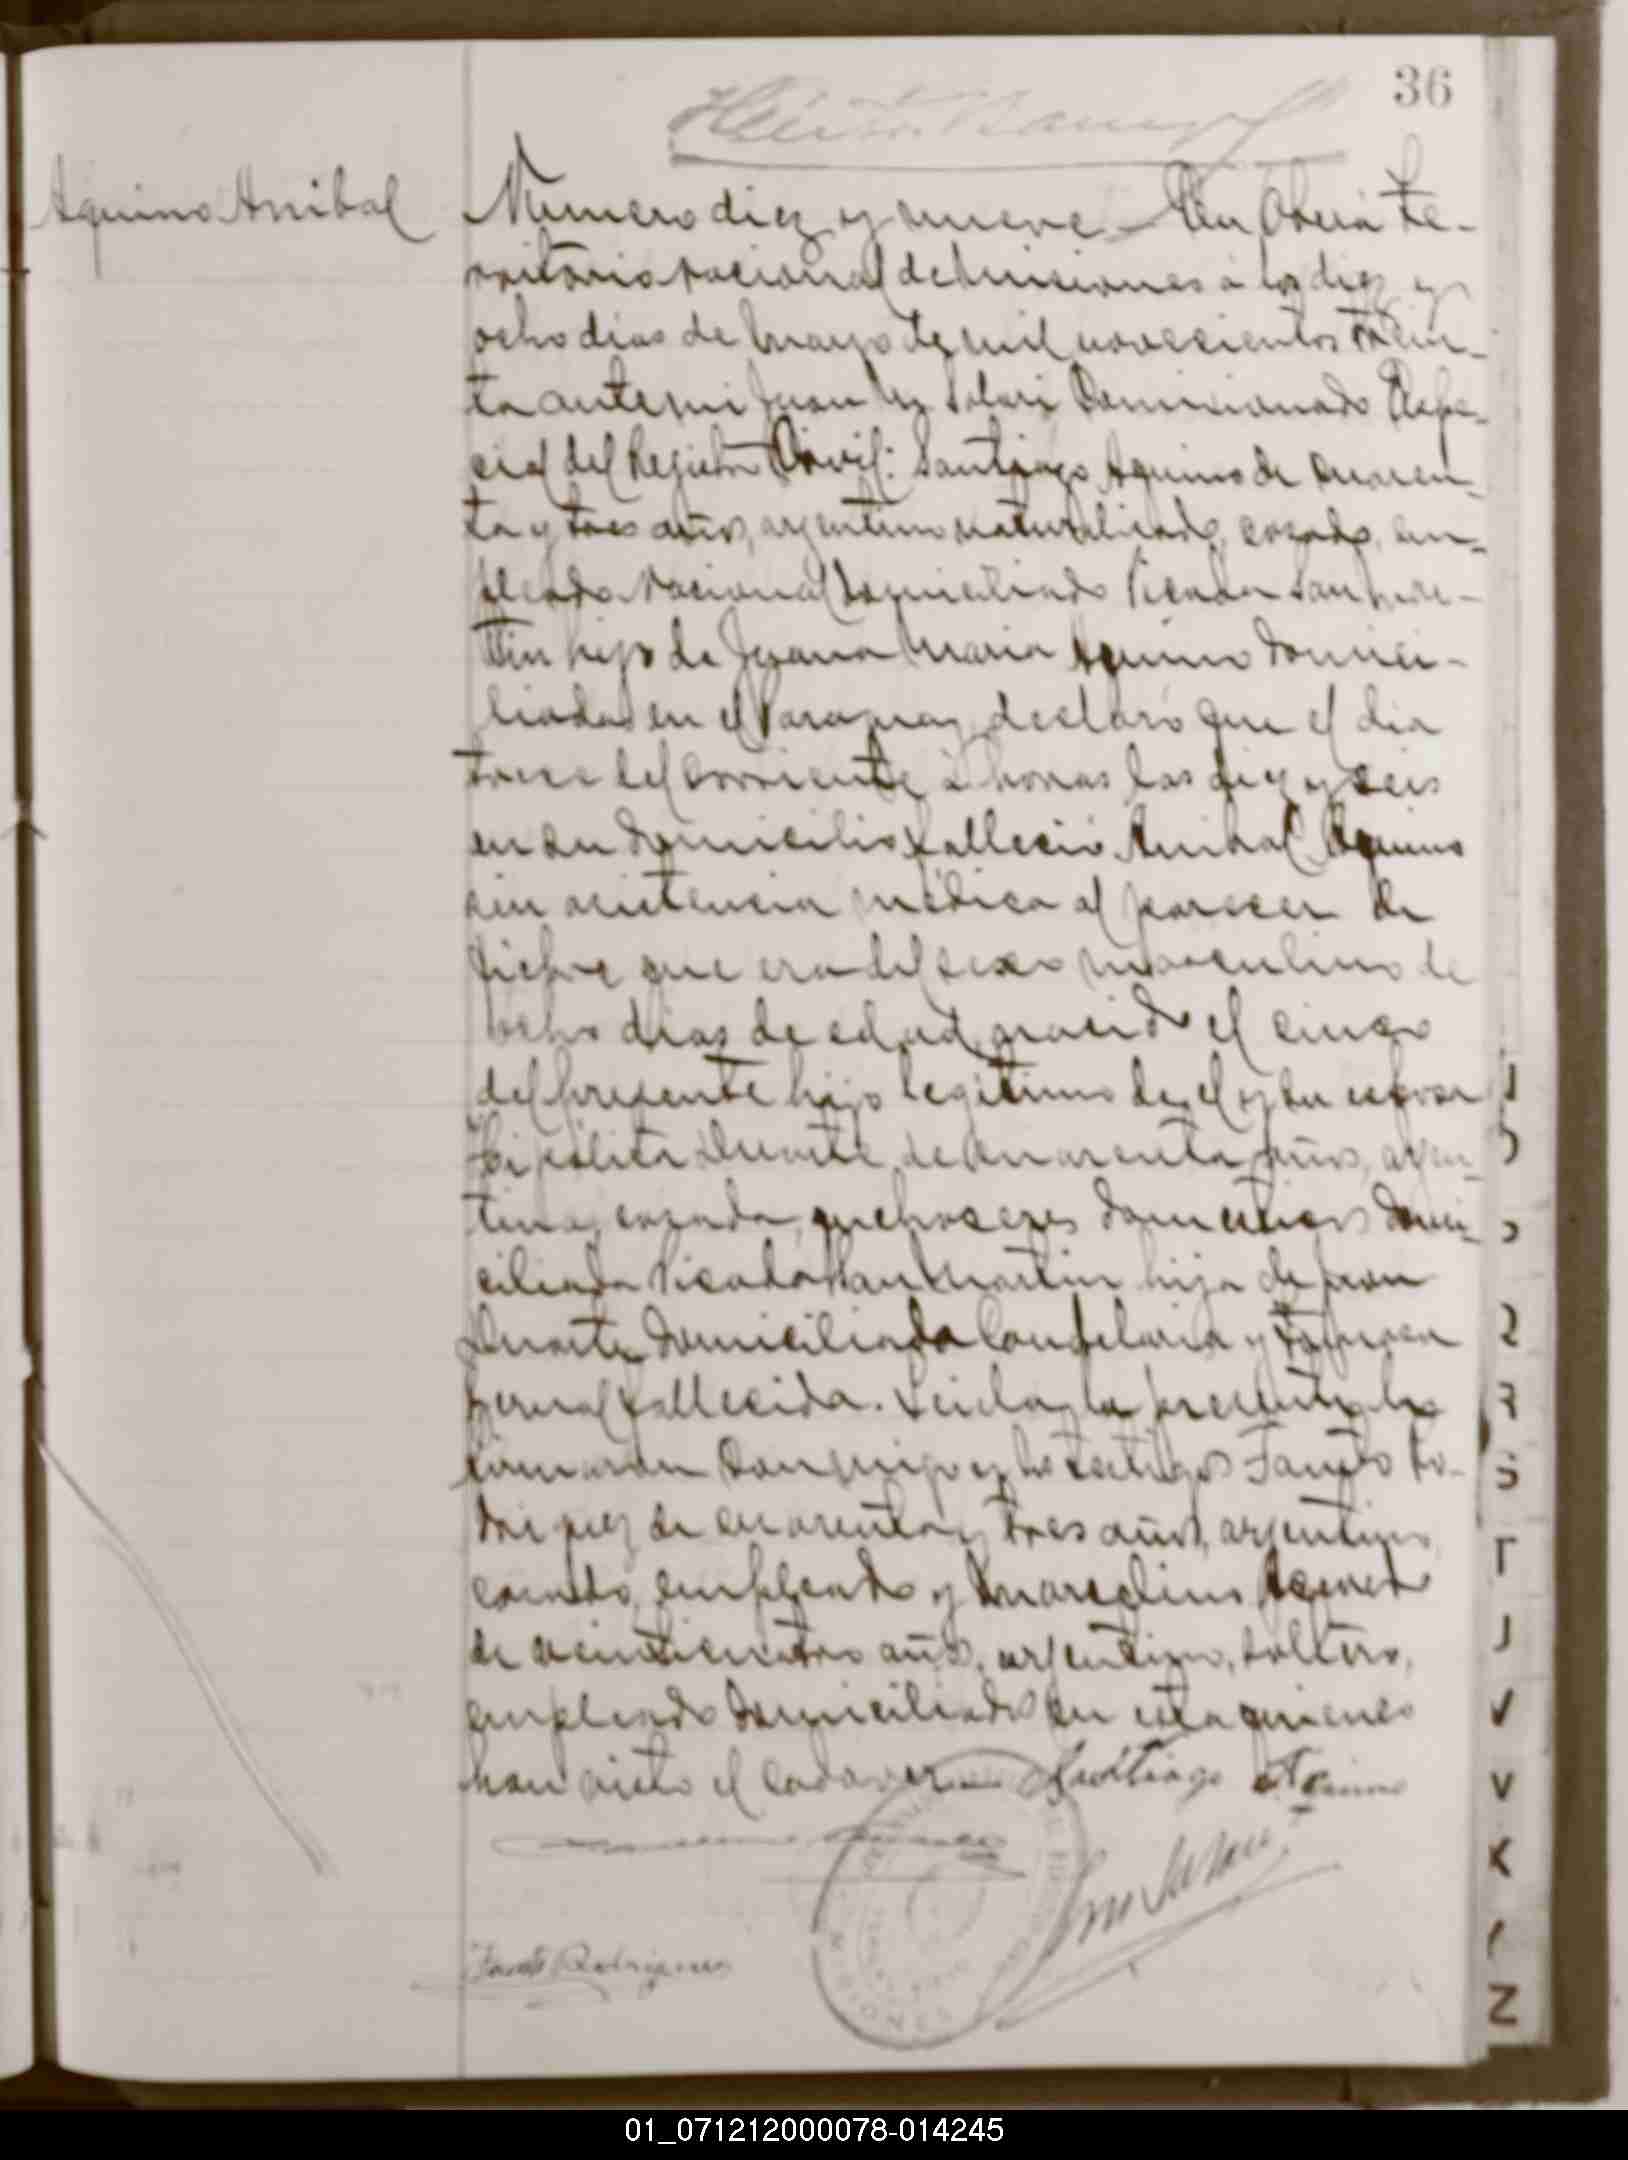 36
Aquino Anibal
Numero diez y nueve En Oberá Te-
rritorio Nacional de Misiones á los diez y
ocho dias de Mayo de mil novecientos trein-
ta ante mi Juan M Solari Comisionado Espe-
cial del Registro Civil: Santiago Aquino de cuaren-
ta y tres años, argentino naturalizado, casado, em-
pleado Nacional domiciliado Picada San Mar-
tin hijo de Juana Maria Aquino domici-
liada en el Paraguay declaró que el dia
trece del corriente á horas las diez y seis
en su domicilio falleció Anibal Aquino
sin asistencia médica al parecer de
fiebre que era del sexo masculino de
ocho dias de edad nacido el cinco
del presente hijo legitimo de el y su esposa
Hipólita Duarte, de cuarenta años, argen-
tina, casada, quehaceres domesticos domi-
ciliada Picada San Martin hija de Juan
Duarte domiciliado Candelaria y
fallecida. Leida la presente la
firmaron conmigo y los testigos Fausto Ro-
driguez de cuarenta y tres años, argentino,
casado, empleado y Marcelino
de veinticuatro años, argentino, soltero,
empleado domiciliados en esta quienes
han visto el cadaver Santiago Aquino
Fausto Rodriguez
MISIONES
J
2
S
T
J
V
V
X
Z
01_071212000078-014245